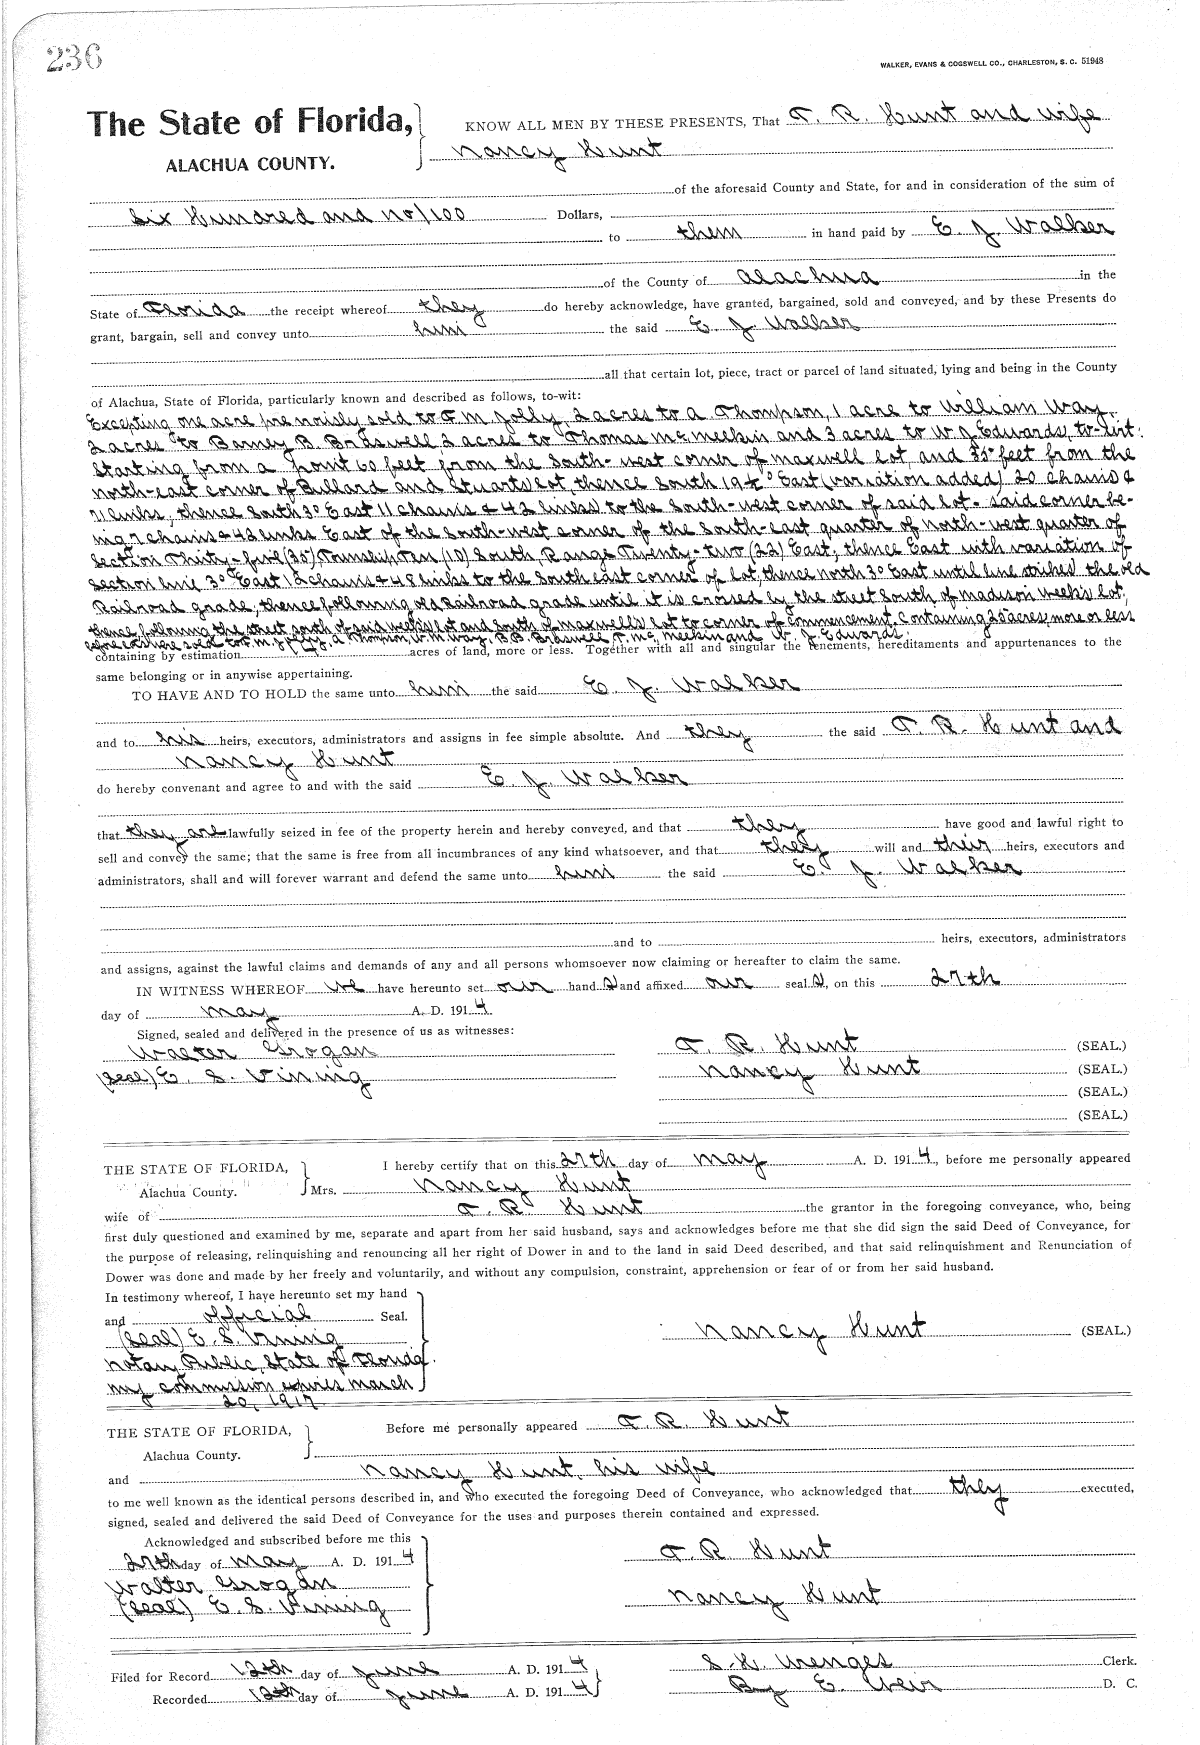 236
WALKER, EVANS & COGSWELL CO., CHARLESTON, S. C. 51948
The State of Florida,
ALACHUA COUNTY.
KNOW ALL MEN BY THESE PRESENTS, That T. R. Hunt and wife
Nancy Hunt
of the aforesaid County and State, for and in consideration of the sum of
Six Hundred and no/100 Dollars,
to them in hand paid by E. J. Walker
of the County of Alachua in the
State of Florida the receipt whereof they do hereby acknowledge, have granted, bargained, sold and conveyed, and by these Presents do
grant, bargain, sell and convey unto him the said E. J. Walker
all that certain lot, piece, tract or parcel of land situated, lying and being in the County
of Alachua, State of Florida, particularly known and described as follows, to-wit:
Excepting one acre previously sold to F. M. Jolly, 2 acres to A. Thompson, 1 acre to William Way,
2 acres to Barney B. Braswell, 2 acres to Thomas McMeekin and 3 acres to W. J. Edwards, to-wit:
Starting from a point 60 feet from the South-west corner of Maxwell lot and 35 feet from the
north-east corner of Bullard and Stuarts lot, thence South 19½° East (variation added) 20 chains &
71 links, thence South 3° East 11 chains & 42 links to the South-west corner of said lot - said corner be-
ing 7 chains & 48 links East of the South-west corner of the South-east quarter of north-west quarter of
Section Thirty-five (35), Township Ten (10) South, Range Twenty-two (22) East; thence East with variation of
Section line 3° East 12 chains & 48 links to the South east corner of lot, thence north 3° East until line strikes the old
Railroad grade; thence following old Railroad grade until it is crossed by the street South of Madison Weeks lot;
thence following the street south of said weeks lot and south of maxwell's lot to corner of commencement. Containing 25 acres, more or less
before sold to F. M. Jolly, A. Thompson, W. M. Way, B. B. Braswell, T. McMeekin and W. J. Edwards.
containing by estimation acres of land, more or less. Together with all and singular the tenements, hereditaments and appurtenances to the
same belonging or in anywise appertaining.
TO HAVE AND TO HOLD the same unto him the said E. J. Walker
and to his heirs, executors, administrators and assigns in fee simple absolute. And they the said T. R. Hunt and
Nancy Hunt
do hereby convenant and agree to and with the said E. J. Walker
that they are lawfully seized in fee of the property herein and hereby conveyed, and that they have good and lawful right to
sell and convey the same; that the same is free from all incumbrances of any kind whatsoever, and that they will and their heirs, executors and
administrators, shall and will forever warrant and defend the same unto him the said E. J. Walker
and to heirs, executors, administrators
and assigns, against the lawful claims and demands of any and all persons whomsoever now claiming or hereafter to claim the same.
IN WITNESS WHEREOF we have hereunto set our hand s and affixed our seal s, on this 27th
day of May A. D. 1914.
Signed, sealed and delivered in the presence of us as witnesses:
Walter Grogan
(Seal) E. S. Vining
T. R. Hunt (SEAL.)
Nancy Hunt (SEAL.)
(SEAL.)
(SEAL.)
THE STATE OF FLORIDA,
Alachua County.
I hereby certify that on this 27th day of May A. D. 1914, before me personally appeared
Mrs. Nancy Hunt
wife of T. R. Hunt the grantor in the foregoing conveyance, who, being
first duly questioned and examined by me, separate and apart from her said husband, says and acknowledges before me that she did sign the said Deed of Conveyance, for
the purpose of releasing, relinquishing and renouncing all her right of Dower in and to the land in said Deed described, and that said relinquishment and Renunciation of
Dower was done and made by her freely and voluntarily, and without any compulsion, constraint, apprehension or fear of or from her said husband.
In testimony whereof, I have hereunto set my hand
and official Seal.
(Seal) E. S. Vining
Notary Public, State of Florida.
My commission expires March
20, 1917
Nancy Hunt (SEAL.)
THE STATE OF FLORIDA,
Alachua County.
Before me personally appeared T. R. Hunt
and Nancy Hunt, his wife
to me well known as the identical persons described in, and who executed the foregoing Deed of Conveyance, who acknowledged that they executed,
signed, sealed and delivered the said Deed of Conveyance for the uses and purposes therein contained and expressed.
Acknowledged and subscribed before me this
27th day of May A. D. 1914
Walter Grogan
(Seal) E. S. Vining
T. R. Hunt
Nancy Hunt
Filed for Record 12th day of June A. D. 1914
Recorded 12th day of June A. D. 1914
S. H. Wienges Clerk.
By E. Weir D. C.